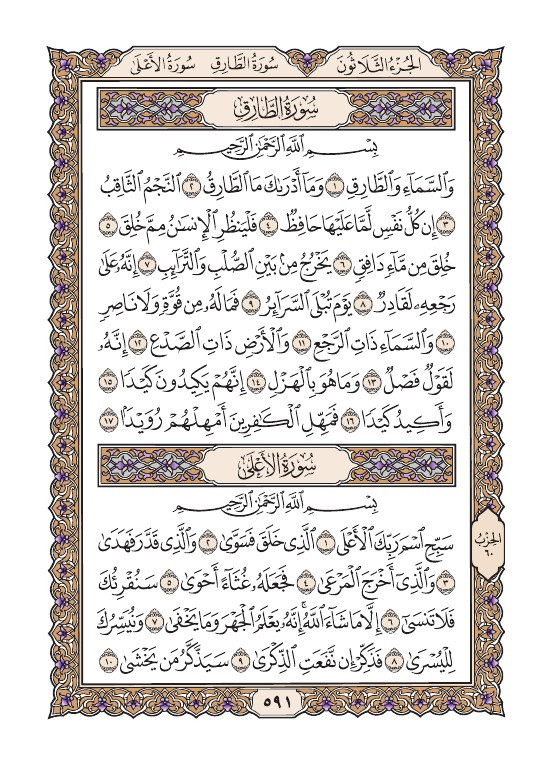 الجُزْءُ الثَّلَاثُونَ سُورَةُ الطَّارِقِ سُورَةُ الأَعْلَى
سُورَةُ الطَّارِقِ
بِسْمِ ٱللَّهِ ٱلرَّحْمَٰنِ ٱلرَّحِيمِ
وَٱلسَّمَآءِ وَٱلطَّارِقِ ١ وَمَآ أَدْرَىٰكَ مَا ٱلطَّارِقُ ٢ ٱلنَّجْمُ ٱلثَّاقِبُ
٣ إِن كُلُّ نَفْسٍ لَّمَّا عَلَيْهَا حَافِظٌ ٤ فَلْيَنظُرِ ٱلْإِنسَٰنُ مِمَّ خُلِقَ ٥
خُلِقَ مِن مَّآءٍ دَافِقٍ ٦ يَخْرُجُ مِنۢ بَيْنِ ٱلصُّلْبِ وَٱلتَّرَآئِبِ ٧ إِنَّهُۥ عَلَىٰ
رَجْعِهِۦ لَقَادِرٌ ٨ يَوْمَ تُبْلَى ٱلسَّرَآئِرُ ٩ فَمَا لَهُۥ مِن قُوَّةٍ وَلَا نَاصِرٍ
١٠ وَٱلسَّمَآءِ ذَاتِ ٱلرَّجْعِ ١١ وَٱلْأَرْضِ ذَاتِ ٱلصَّدْعِ ١٢ إِنَّهُۥ
لَقَوْلٌ فَصْلٌ ١٣ وَمَا هُوَ بِٱلْهَزْلِ ١٤ إِنَّهُمْ يَكِيدُونَ كَيْدًا ١٥
وَأَكِيدُ كَيْدًا ١٦ فَمَهِّلِ ٱلْكَٰفِرِينَ أَمْهِلْهُمْ رُوَيْدًۢا ١٧
سُورَةُ الأَعْلَىٰ
بِسْمِ ٱللَّهِ ٱلرَّحْمَٰنِ ٱلرَّحِيمِ
سَبِّحِ ٱسْمَ رَبِّكَ ٱلْأَعْلَى ١ ٱلَّذِى خَلَقَ فَسَوَّىٰ ٢ وَٱلَّذِى قَدَّرَ فَهَدَىٰ
٣ وَٱلَّذِىٓ أَخْرَجَ ٱلْمَرْعَىٰ ٤ فَجَعَلَهُۥ غُثَآءً أَحْوَىٰ ٥ سَنُقْرِئُكَ
فَلَا تَنسَىٰٓ ٦ إِلَّا مَا شَآءَ ٱللَّهُ ۚ إِنَّهُۥ يَعْلَمُ ٱلْجَهْرَ وَمَا يَخْفَىٰ ٧ وَنُيَسِّرُكَ
لِلْيُسْرَىٰ ٨ فَذَكِّرْ إِن نَّفَعَتِ ٱلذِّكْرَىٰ ٩ سَيَذَّكَّرُ مَن يَخْشَىٰ ١٠
الحِزْب
٦٠
٥٩١